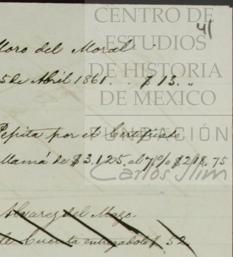 CENTRO DE
ESTUDIOS
DE HISTORIA
DE MEXICO
FUNDACIÓN
Carlos Slim
41
Moro del Moral
5 de Abril 1861. $ 13.
Pepita por el Certificado
Mamá de $3,125, al 7% $218,75
Alvarez del Mazo
de Cuenta entregados $ 52